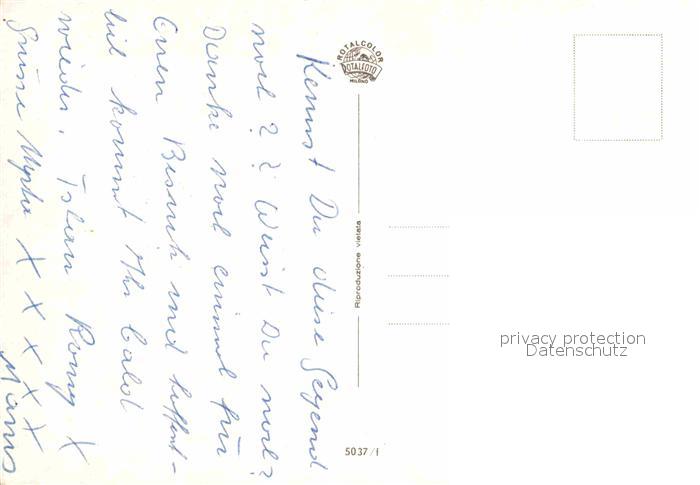 Kennst Du diese Gegend
noch?? Weist Du noch?
Danke noch einmal für
Euren Besuch und hoffent-
lich kommt Ihr bald
wieder.
Grüsse
X X X X X X
ROTALCOLOR
ROTALFOTO
MILANO
Riproduzione vietata
5037/I
privacy protection
Datenschutz